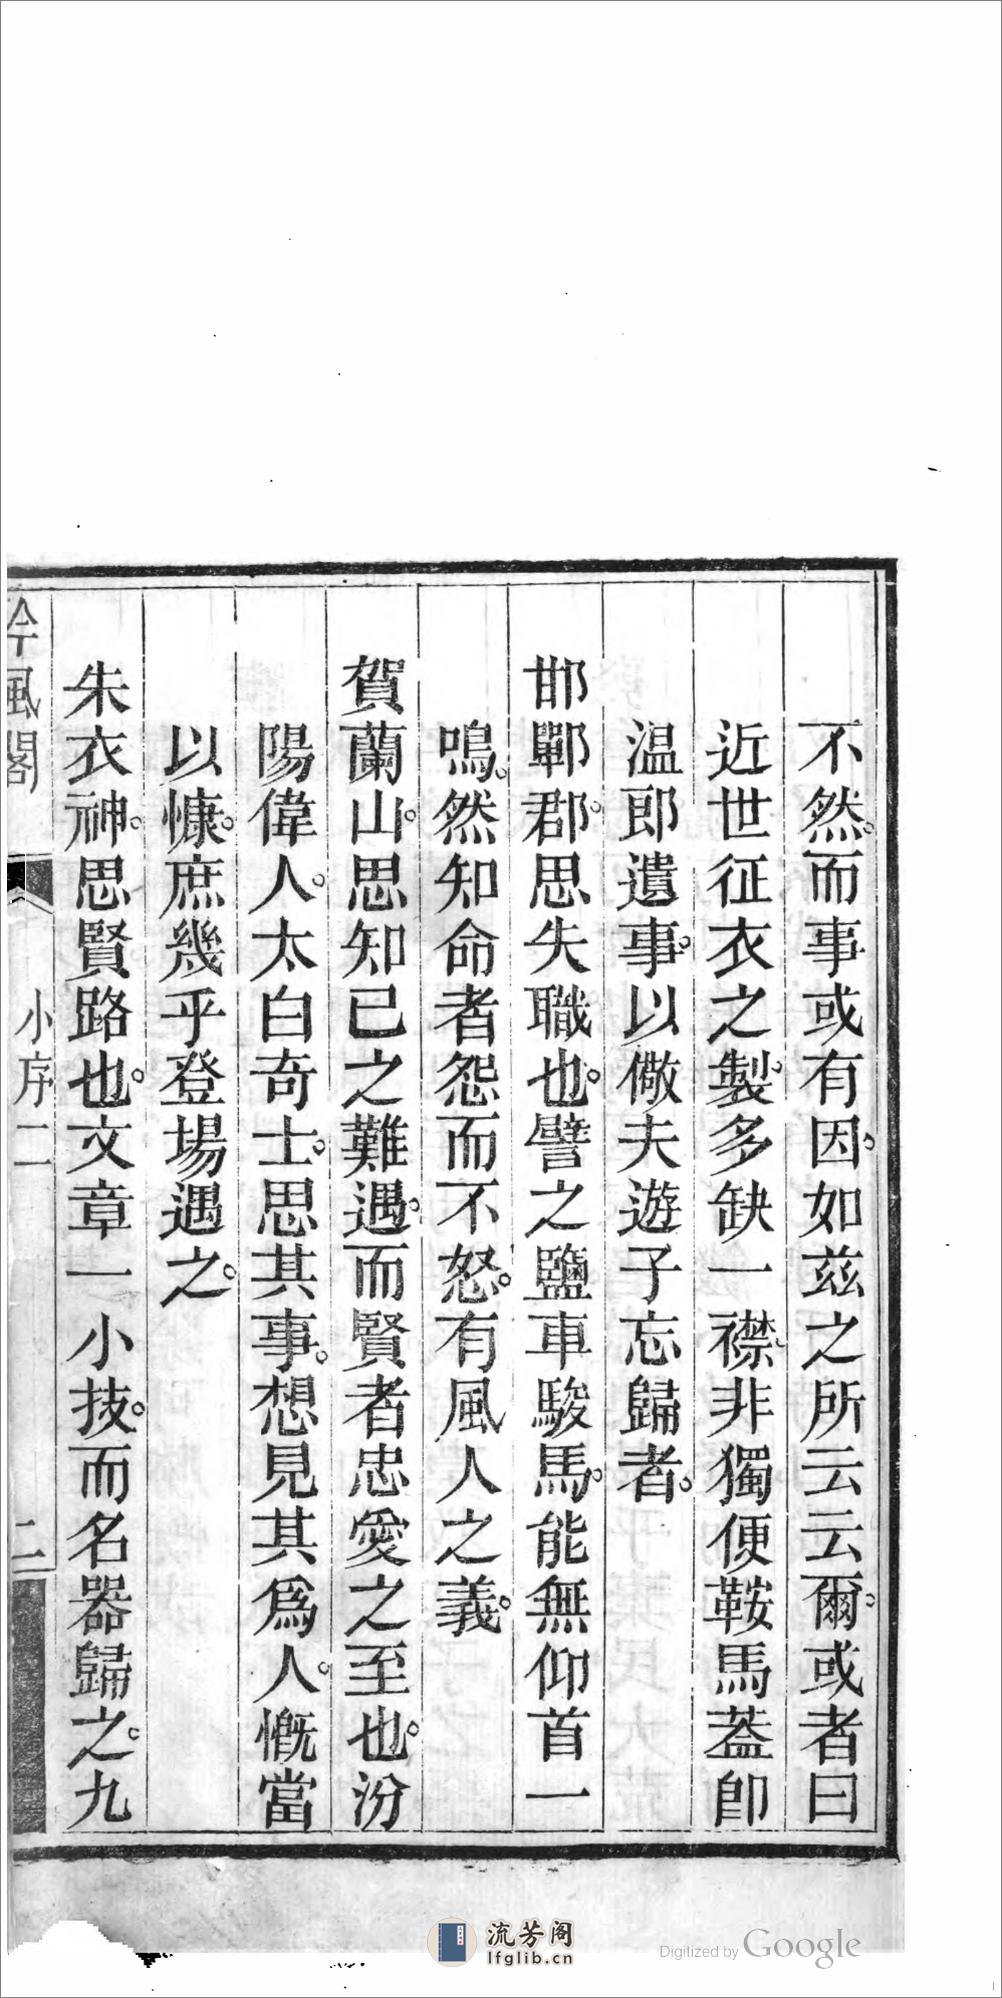 不然。而事或有因。如茲之所云云爾。或者曰
近世征衣之製。多缺一襟。非獨便鞍馬蓋卽
温郎遺事。以儆夫遊子忘歸者。
邯鄲郡。思失職也。譬之鹽車駿馬。能無仰首一
鳴。然知命者怨而不怒。有風人之義。
賀蘭山。思知己之難遇。而賢者忠愛之至也。汾
陽偉人。太白奇士。思其事。想見其爲人。慨當
以慷。庶幾乎登場遇之。
朱衣神。思賢路也。文章一小技。而名器歸之。九
吟風閣
小序二
二
流芳阁
lfglib.cn
Digitized by Google